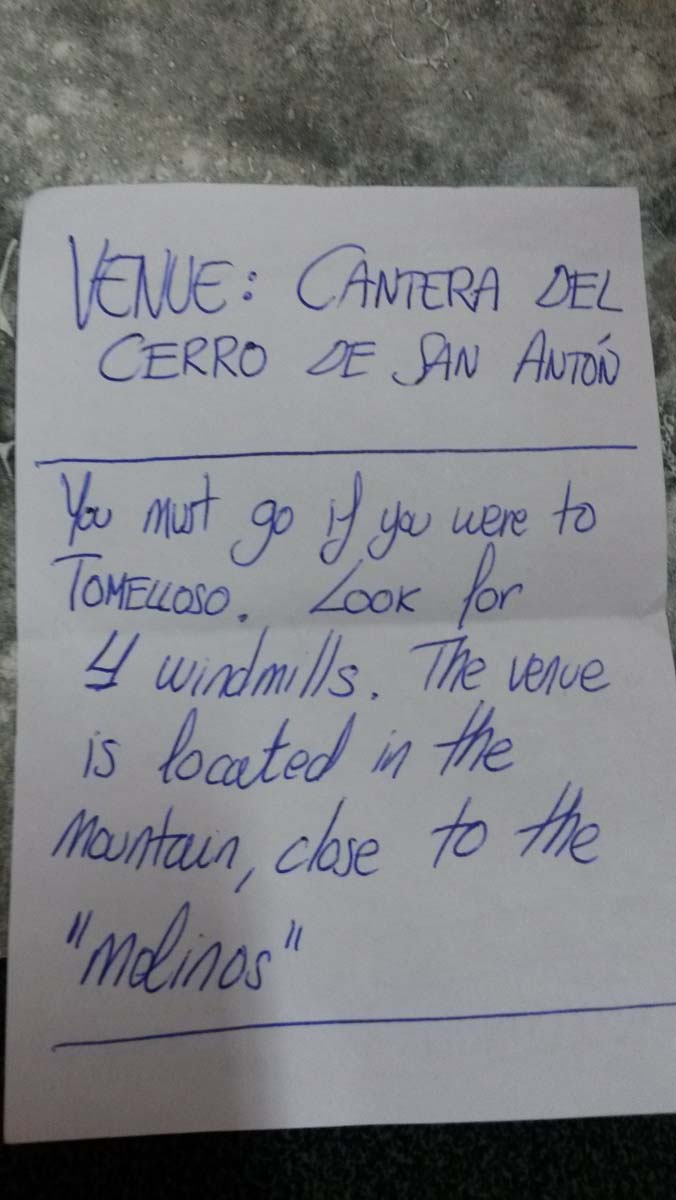 VENUE: CANTERA DEL
CERRO DE SAN ANTÓN
You must go if you were to
TOMELLOSO. LOOK for
4 windmills. The venue
is located in the
mountain, close to the
"molinos"